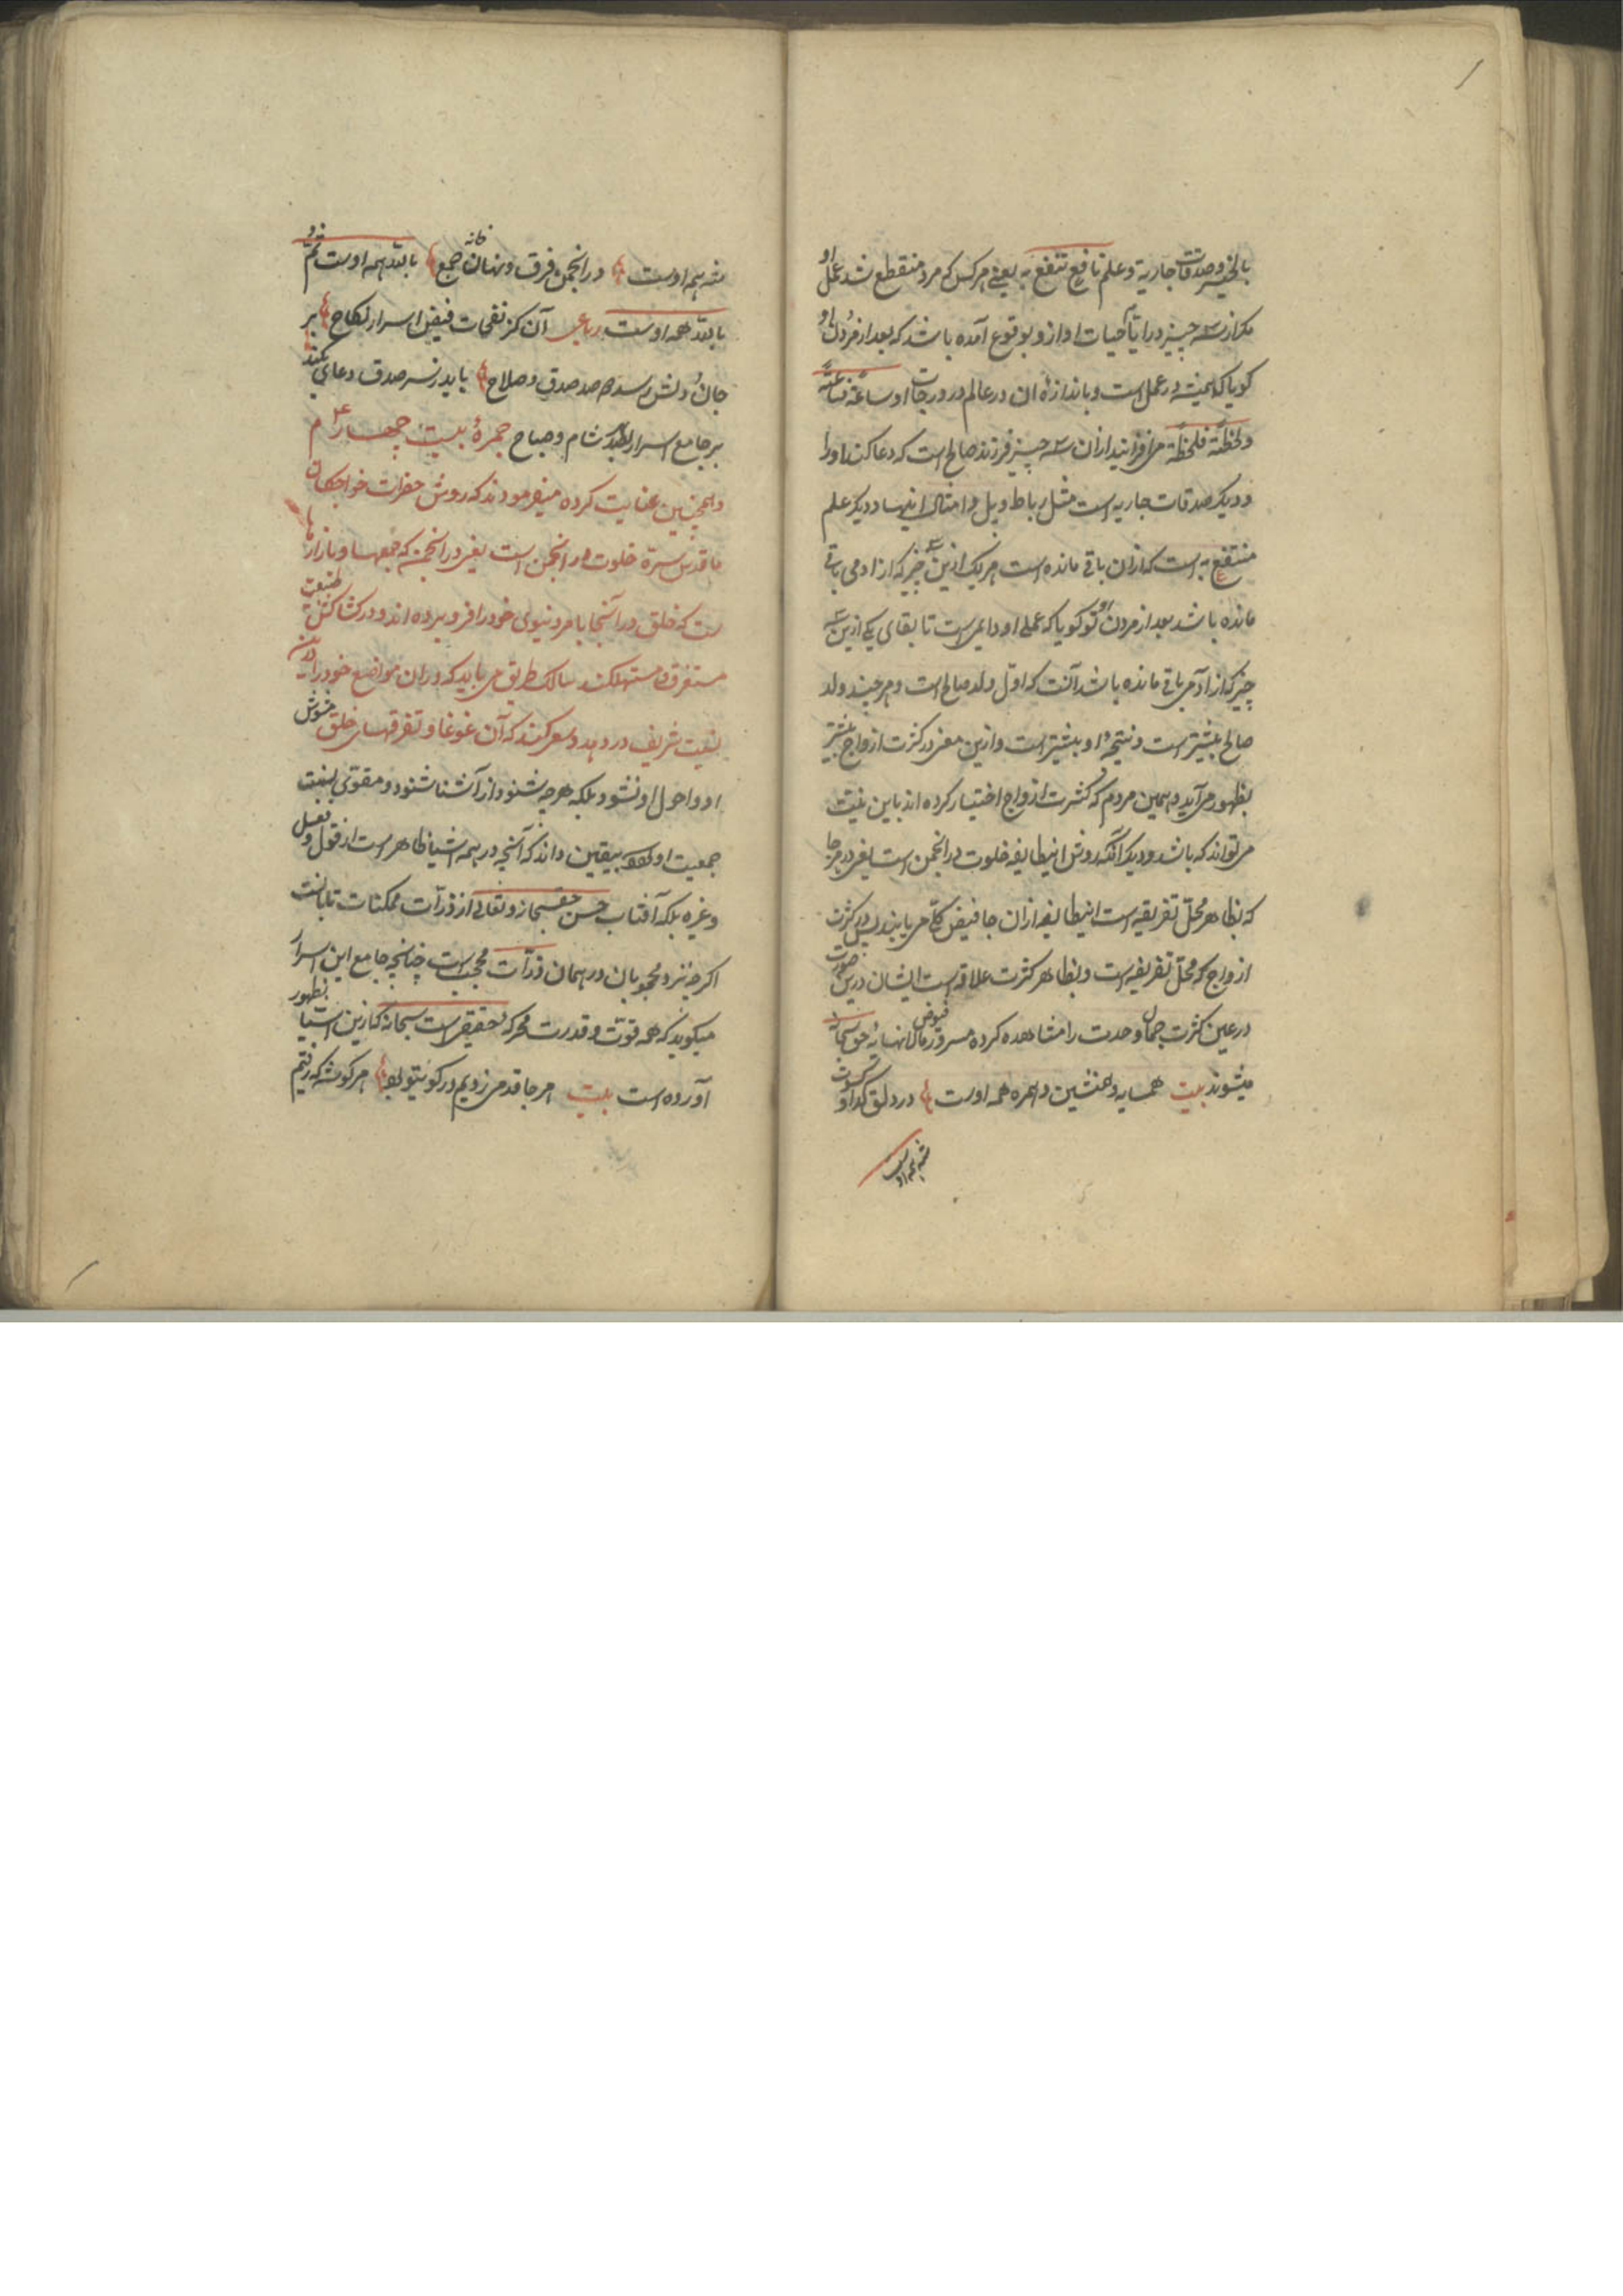 بالخیر و صدقات جاریة و علم نافع تنفع به یعنے هر کس که مرد منقطع شد عمل او
مکر از سه چیز در ایّام حیات او ازو بوقوع آمده باشد که بعد از مردن او
کویا که همیشه در عمل است و باندازۀ ان در عالم در درجات او ساعة فساعة
و لحظة فلحظة می افزایند ازان سه چیز فرزند صالح است که دعا کند او را
و دیکر صدقات جاریه است مثل رباط و پل و امثال اینها و دیکر علم
منتفع به است که ازان باقی مانده است هر یک ازین سه چیز که از ادمی باقی
مانده باشد بعد از مردن او تو کویا که عملی او دایمی است تا بقای یکی ازین سه
چیز که از آدمی باقی مانده باشد آنست که اوّل ولد صالح است و هر چند ولد
صالح بیشتر است و نتیجۀ او بیشتر است و ازین معنی در کثرت ازواج بیشتر
بظهور می آید و همین مردم که کثرت ازواج اختیار کرده اند باین نیّت
می تواند که باشد و دیکر آنکه روش اینطایفه خلوت در انجمن است یعنی در هر جا
که بظاهر محلّ تفریقه است اینطایفه ازان جا فیض کلّی می یابند لیکن در کثرت
ازواج که محلّ تفریقه است و بظاهر کثرت علاقه است ایشان درین صورت
در عین کثرت جمال وحدت را مشاهده کرده مسرور فیوض مالانهایۀ حق سبحانه
میشوند بیت همسایه و همنشین و همره همه اوست در دلق کدا و کسوت
شه همه اوست
شه همه اوست در انجمن فرق و نهان خانه جمع بالله همه اوست ثمّ و
بالله همه اوست رباعی آن کز نفحات فیض اسرار نکاح بر
جان و دلش رسد صد صدق و صلاح باید ز سر صدق دعای بکند
بر جامع اسرار شام و صباح جمرۀ بیست چهارم
و همچنین عنایت کرده میفرمودند که روش حضرات خواجکان
ما قدس سرّه خلوت در انجمن است یعنی در انجمن که جمعها و بازارها
ست که خلق در آنجا بامر دنیوی خود را فرو برده اند و در کشاکش طبیعت
مستغرق و مستهلکند سالک طریق می باید که دران مواضع خود را باین
نسبت شریف در دهد و سعی کند که آن غوغا و تفرقهای خلق مشوش
او و احوال او نشود بلکه هرچه شنود از آشنا شنود و مقوّی نسبت
جمعیت او بیقین داند که آنچه در همه اشیا ظاهر است از قول و فعل
و غیره بلکه آفتاب حسن حق سبحانه و تعالی از ذرّات ممکنات تابانست
اکرچه نزد محجوبان در همان ذرّات محجب است چنانچه جامع این اسرار
میکوید که همه قوّت و قدرت محرکه حقیقی است سبحانه که ازین اشیا بظهور
آورده است بیت هر جا قدمی زدیم در کوی تو بود هر کوشه که رفتیم